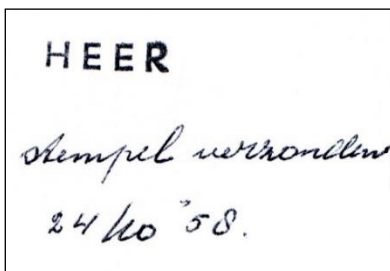 HEER
stempel verzonden
24/10 '58.